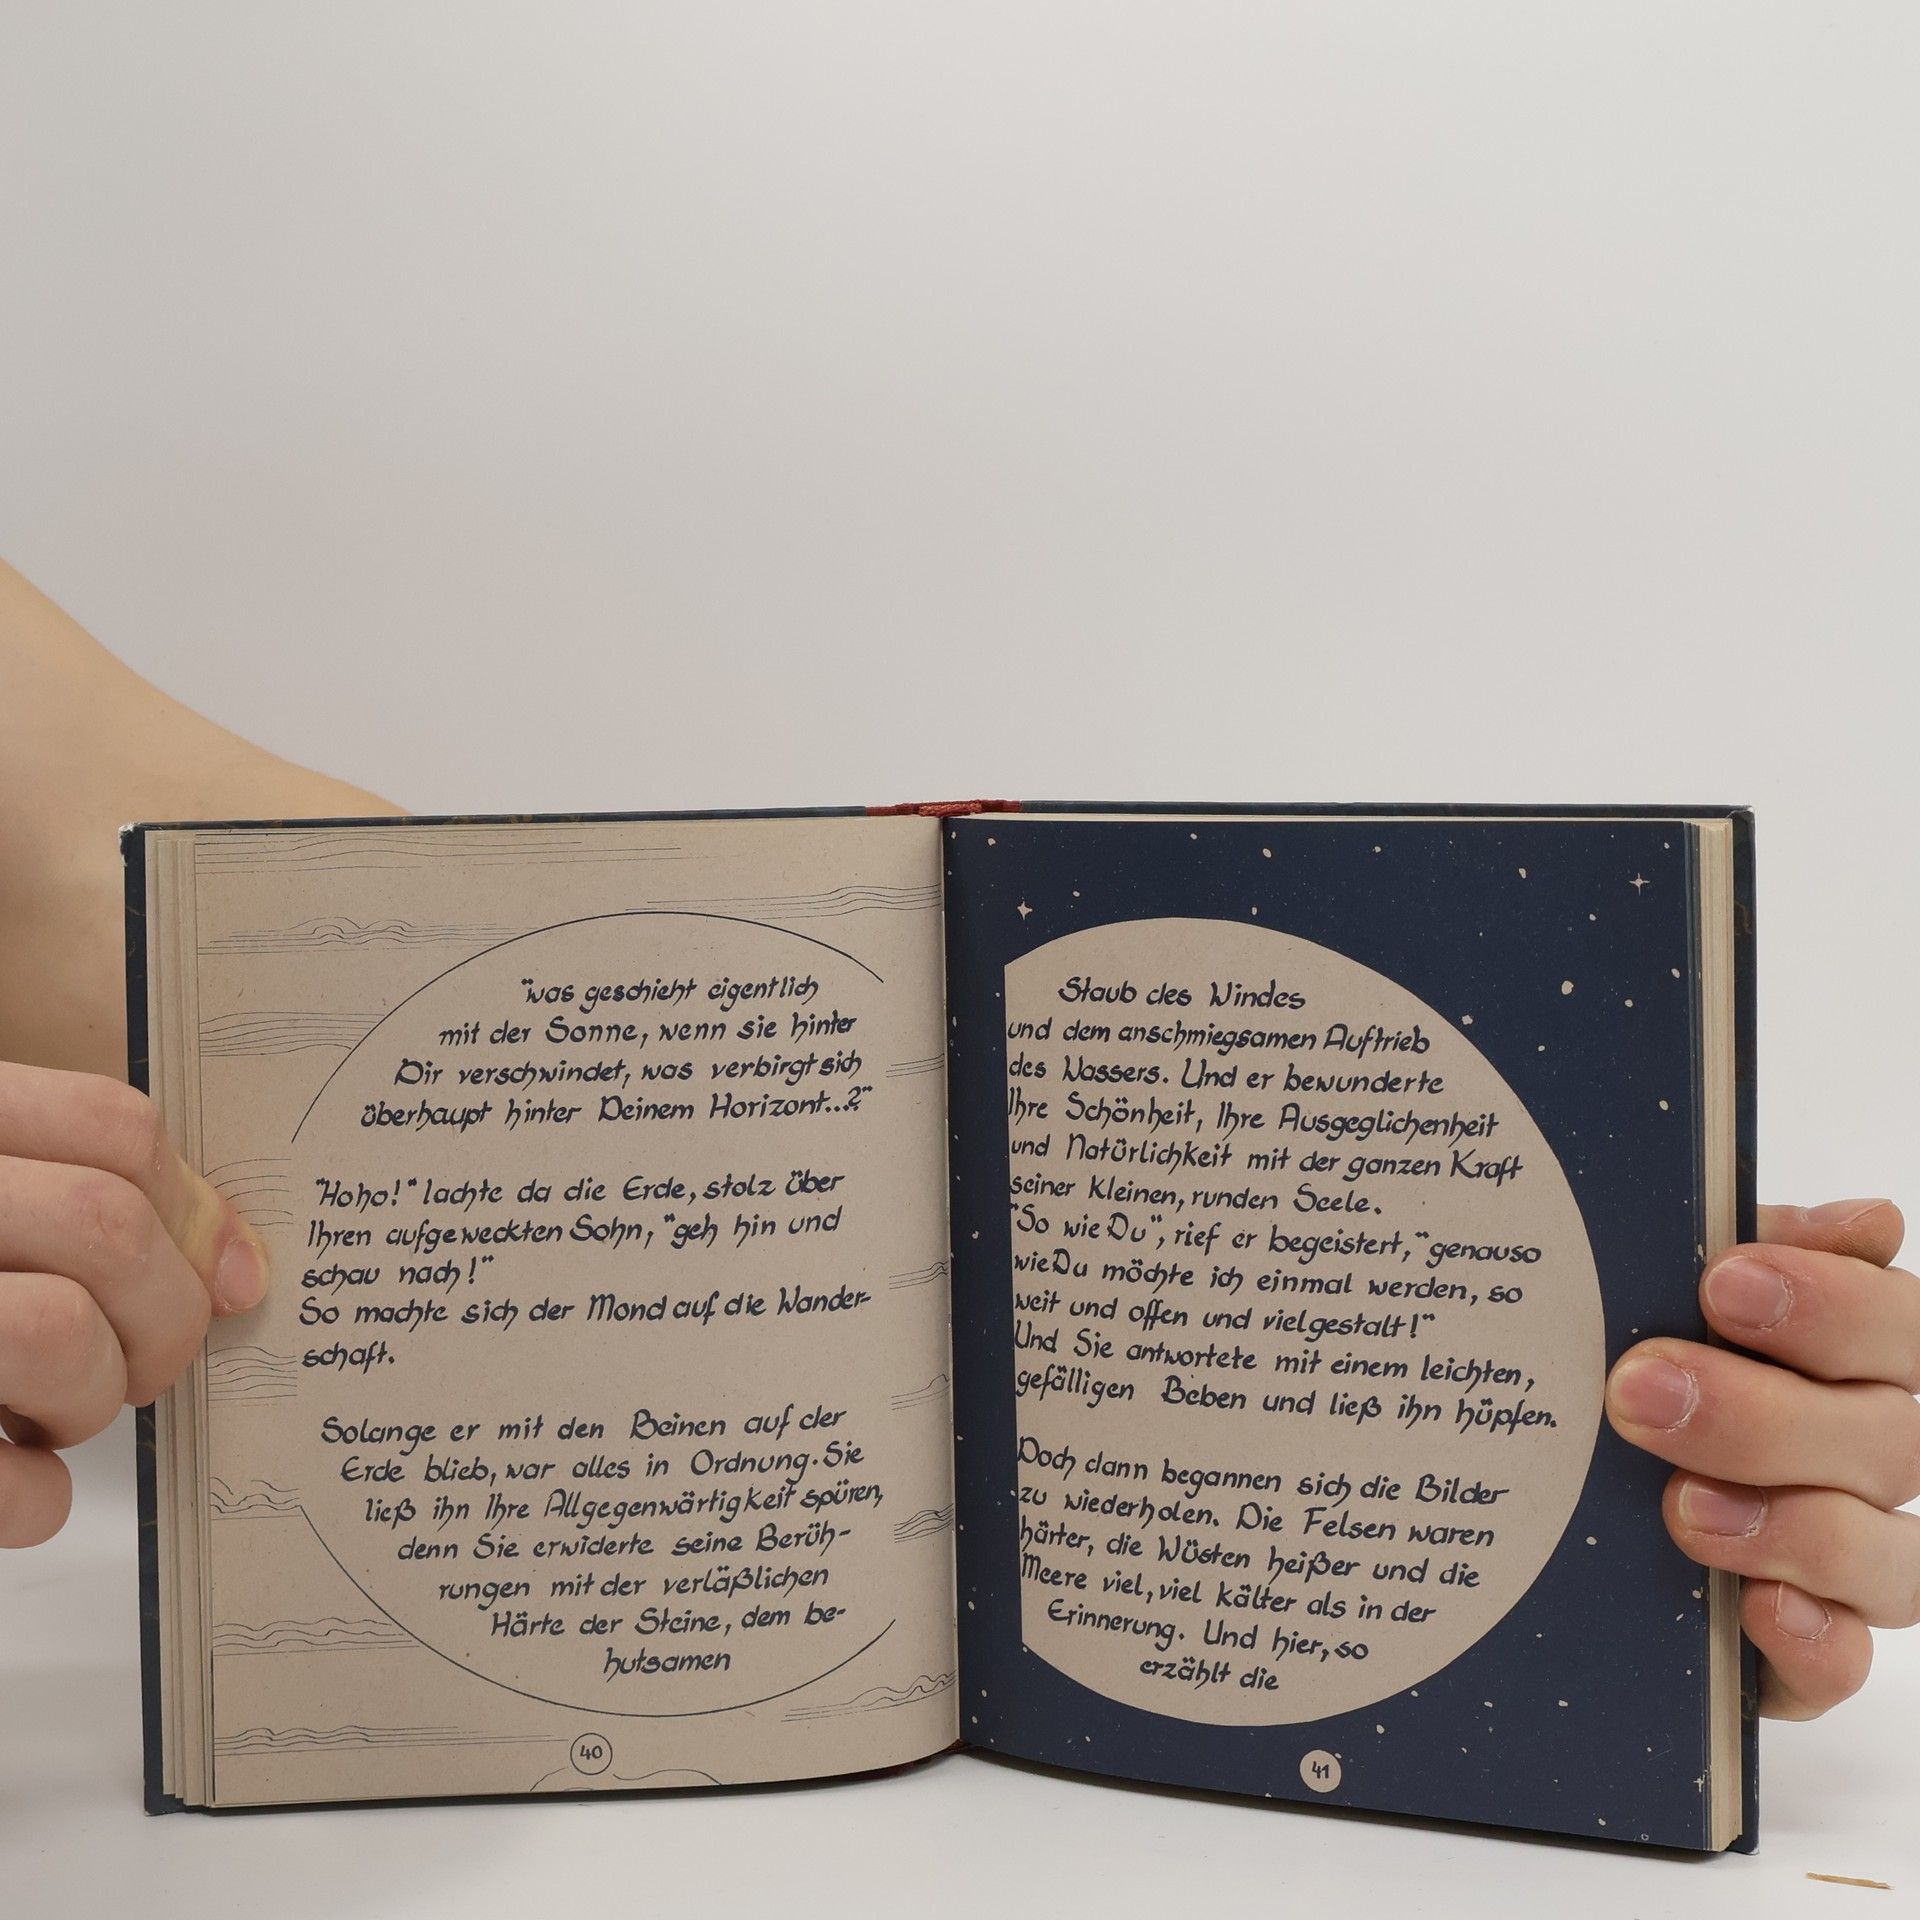 "was geschieht eigentlich
mit der Sonne, wenn sie hinter
Dir verschwindet, was verbirgt sich
überhaupt hinter Deinem Horizont...?"
"Hoho!" lachte da die Erde, stolz über
Ihren aufgeweckten Sohn, "geh hin und
schau nach!"
So machte sich der Mond auf die Wander-
schaft.
Solange er mit den Beinen auf der
Erde blieb, war alles in Ordnung. Sie
ließ ihn Ihre Allgegenwärtigkeit spüren,
denn Sie erwiderte seine Berüh-
rungen mit der verläßlichen
Härte der Steine, dem be-
hutsamen
40
Staub des Windes
und dem anschmiegsamen Auftrieb
des Wassers. Und er bewunderte
Ihre Schönheit, Ihre Ausgeglichenheit
und Natürlichkeit mit der ganzen Kraft
seiner kleinen, runden Seele.
"So wie Du", rief er begeistert, "genauso
wie Du möchte ich einmal werden, so
weit und offen und vielgestalt!"
Und Sie antwortete mit einem leichten,
gefälligen Beben und ließ ihn hüpfen.
Doch dann begannen sich die Bilder
zu wiederholen. Die Felsen waren
härter, die Wüsten heißer und die
Meere viel, viel kälter als in der
Erinnerung. Und hier, so
erzählt die
41